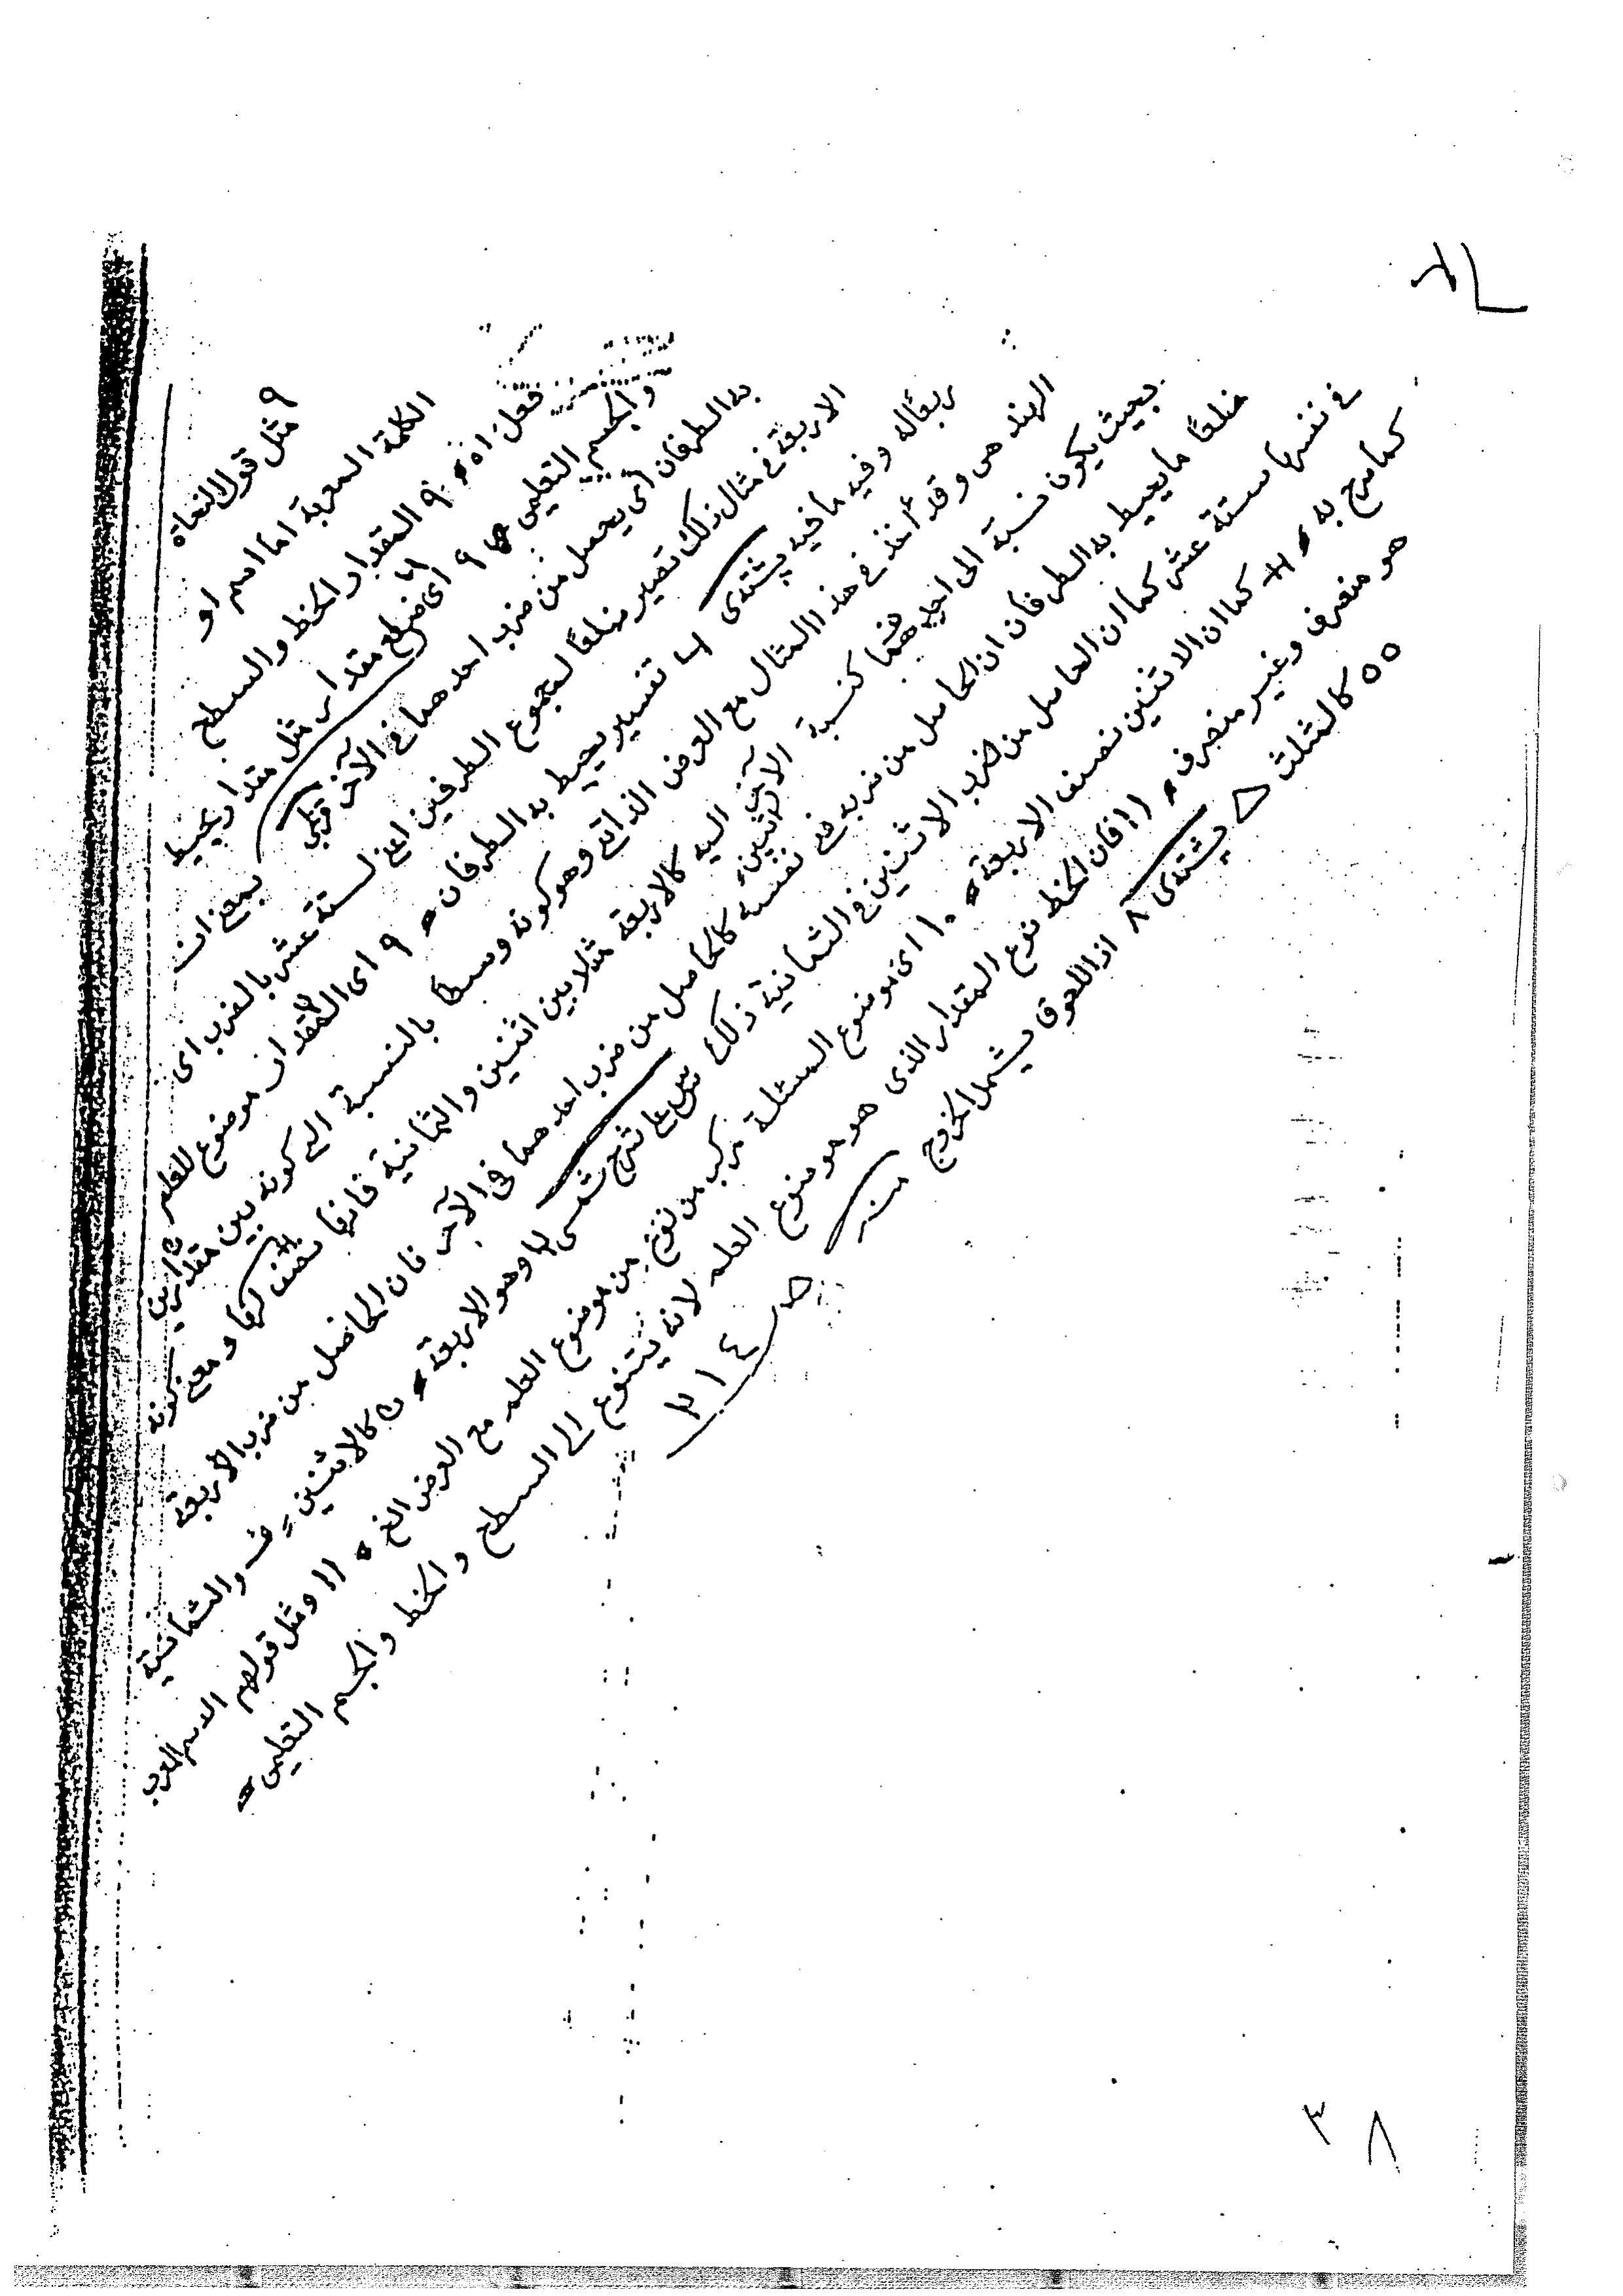 ٩ مثل قول النحاة
الكلمة المعربة اما اسم او
فعل اه ٩ المقدار الخط والسطح
والجسم التعليمى ٩ اى ضلع مقدار مثل مقدار يحيط
به الطرفان اى يحصل من ضرب احدهما فى الآخر قزلجى بمعنى ان
الاربعة فى مثال ذلك تصير ضلعًا لمجموع الطرفين اعنى لستة عشر بالضرب اى
ربعًا له وفيه ما فيه پشتدى ٧ تفسير يحيط به الطرفان ٩ اى المقدار موضوع للعلم
الهندسى وقد أخذ فى هذا المثال مع العرض الذاتى وهو كونه وسطًا بالنسبة الى كونه بين مقدارين
بحيث يكون نسبة الى احدهما كنسبة الآخر اليه كالاربعة مثلا بين اثنين والثمانية فانها نصف لها ومعنى كونه
ضلعًا ما يحيط به الطرفان ان الحاصل من ضربه فى نفسه كالحاصل من ضرب احدهما فى الآخر فان الحاصل من ضرب الأربعة
فى نفسها ستة عشر كما ان الحاصل من ضرب الاثنين فى الثمانية ذلك على شرح شمسى وهو الاربعة ٥ كالاثنين والثمانية
كما صرح به كما ان الاثنين نصف الاربعة ١٠ اى موضوع المسئلة مركب من نوع من موضوع العلم مع العرض الخ ١١ ومثل قولهم الاسم المعرب
هو منصرف وغير منصرف ١١ فان الخط نوع المقدار الذى هو موضوع العلم لانه يتنوع الى السطح والخط والجسم التعليمى
٥٥ كالمثلث پشتدى ٨ اذ اللحوق يشمل الخروج منه
ص ٣١٤
٣٨